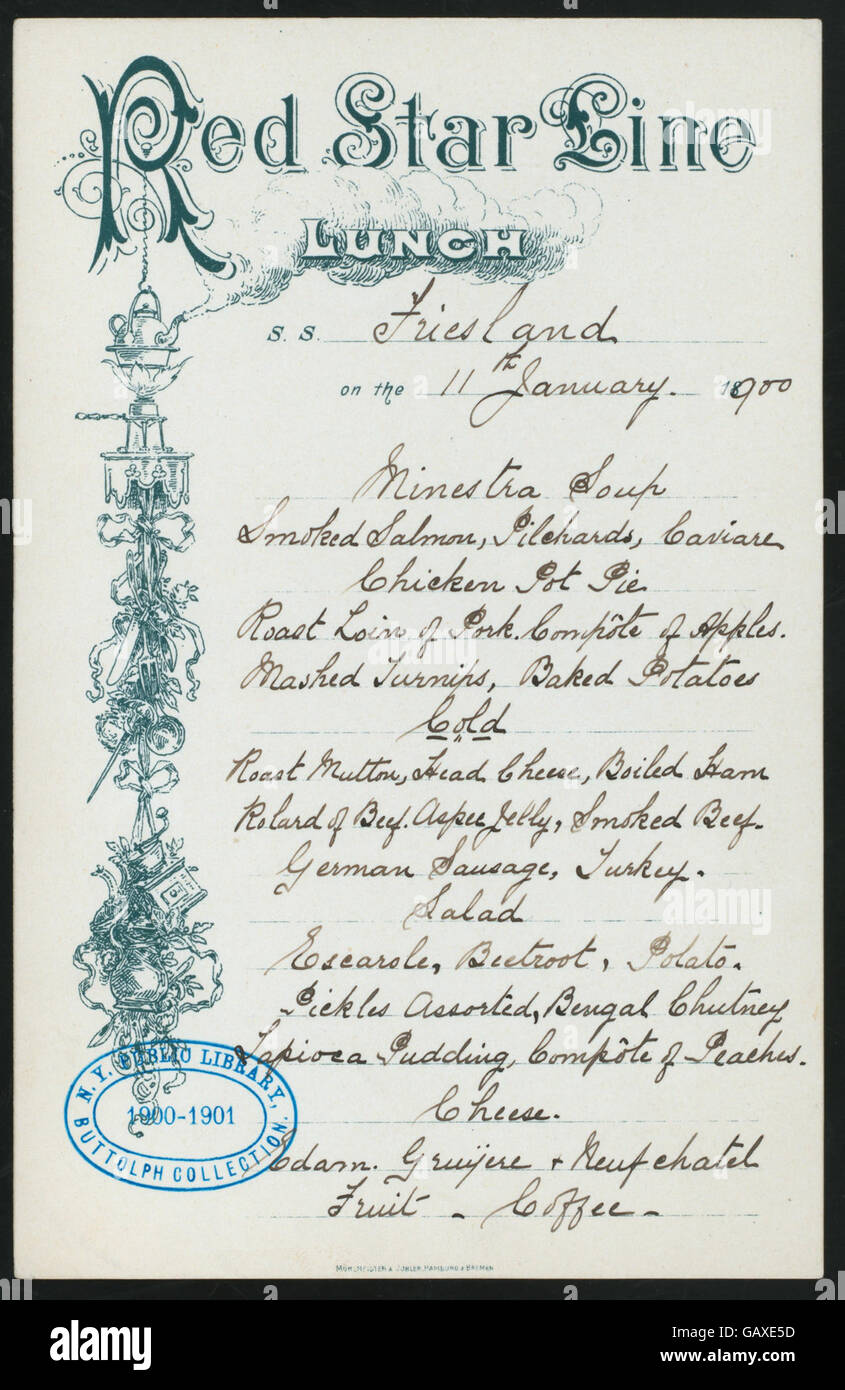 Red Star Line
LUNCH
S. S. Friesland
on the 11th January. 1900
Minestra Soup
Smoked Salmon, Pilchards, Caviare
Chicken Pot Pie
Roast Loin of Pork. Compôte of Apples.
Mashed Turnips, Baked Potatoes
Cold
Roast Mutton, Head Cheese, Boiled Ham
Rolard of Beef. Aspec Jelly, Smoked Beef.
German Sausage, Turkey.
Salad
Escarole, Beetroot, Potato.
Pickles Assorted, Bengal Chutney
Tapioca Pudding, Compôte of Peaches.
Cheese.
Edam. Gruyere + Neufchatel
Fruit - Coffee -
N. Y. PUBLIC LIBRARY,
1900-1901
BUTTOLPH COLLECTION.
MÜHLMEISTER & JOHLER, HAMBURG & BREMEN
alamy
alamy
alamy
alamy stock photo
GAXE5D
www.alamy.com